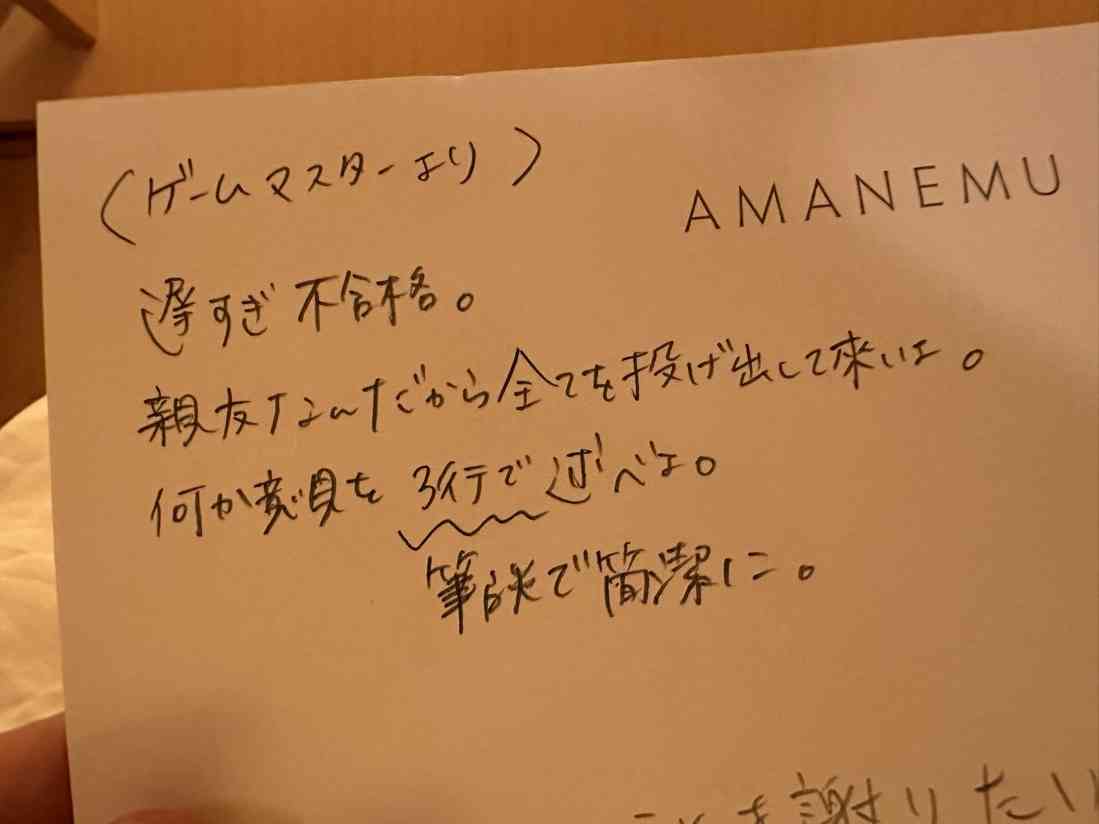 (ゲームマスターより)
AMANEMU
遅すぎ 不合格。
親友なんだから全てを投げ出して来いよ。
何か意見を 3行で述べよ。
筆談で簡潔に。
を謝りたい